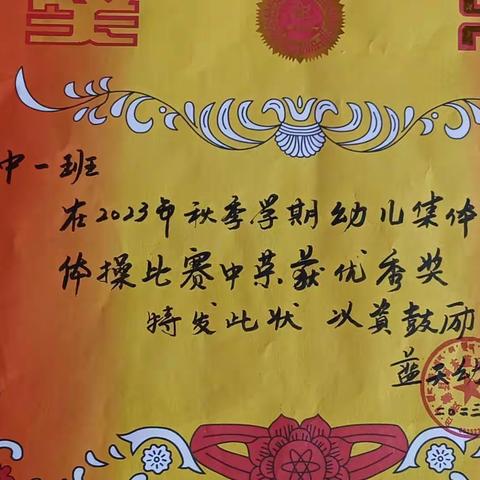 奖
中一班
在2023年秋季学期幼儿集体
体操比赛中荣获优秀奖
特发此状 以资鼓励
蓝天幼
二〇二三